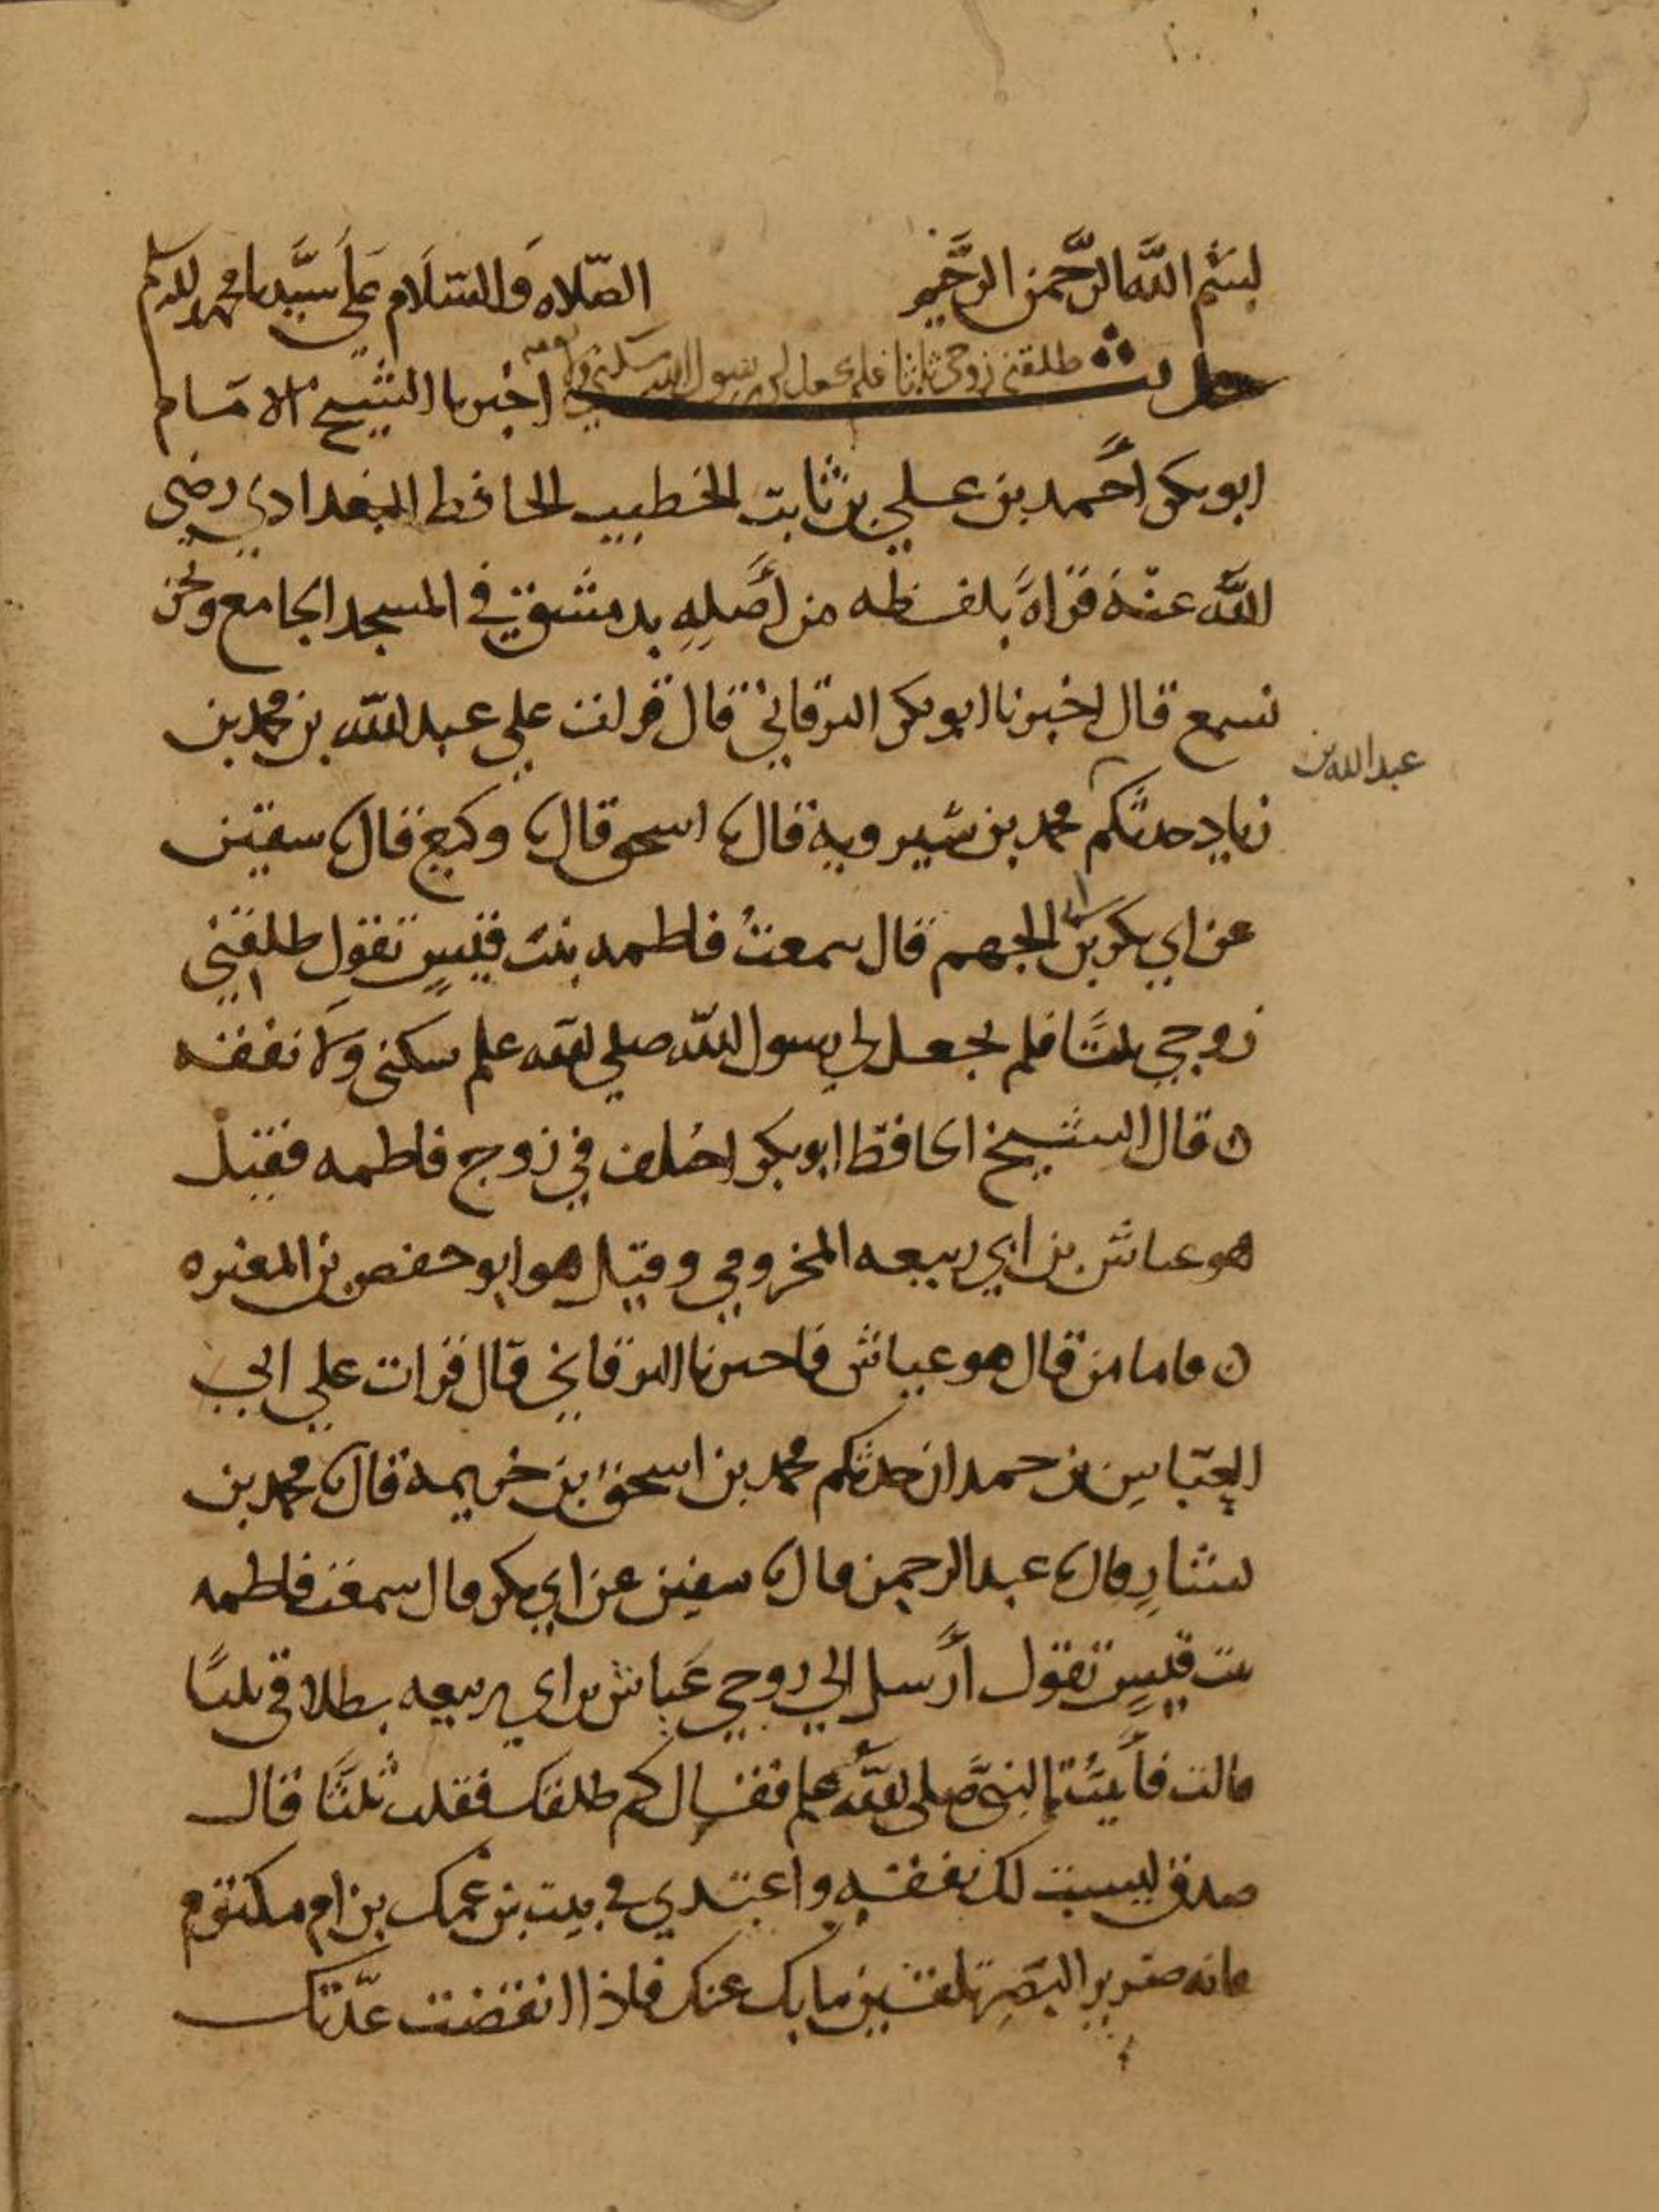 بسم الله الرحمن الرحيم الصلاه والسلام على سيدنا محمد
حديث طلقني زوجي ثلاثا فلم يجعل لي رسول الله سكنى ولا نفقه اخبرنا الشيخ الامام
ابو بكر احمد بن علي بن ثابت الخطيب الحافظ البغدادي رضي
الله عنه قراة بلفظه من أصله بدمشق في المسجد الجامع ونحن
نسمع قال اخبرنا ابو بكر البرقاني قال قرات علي عبد الله بن محمد بن
عبد الله بن
زياد حدثكم محمد بن شيرويه قال نا اسحق قال نا وكيع قال نا سفين
عن ابي بكر بن ابي الجهم قال سمعت فاطمه بنت قيس تقول طلقني
زوجي ثلثا فلم يجعل لي رسول الله صلى الله علم سكنى ولا نفقه
ه قال الشيخ الحافظ ابو بكر اختلف في زوج فاطمه فقيل
هو عياش بن ابي ربيعه المخزومي وقيل هو ابو حفص بن المغيره
ه فاما من قال هو عياش فاخبرنا البرقاني قال قرات علي ابي
العباس بن حمدان حدثكم محمد بن اسحق بن خزيمه قال نا محمد بن
بشار قال نا عبد الرحمن قال نا سفين عن ابي بكر قال سمعت فاطمه
بنت قيس تقول أرسل الي زوجي عياش بن ابي ربيعه بطلاقي ثلثا
قالت فأتيت النبي صلى الله علم فقال كم طلقك فقلت ثلثا قال
صدق ليست لك نفقه واعتدي في بيت بن عمك بن ام مكتوم
فانه ضرير البصر تلقين ثيابك عنك فاذا انقضت عدتك